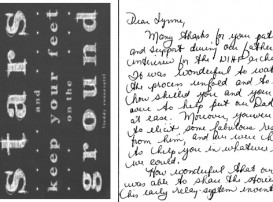 stars
and
keep your feet
on the
ground
Dear Lynne,
Many thanks for your pat
and support during our father
interview for the
It was wonderful to wat
the process unfold and to
how skilled you and your
were to help put our Dad
at ease. Moreover, you were
to elicit some fabulous res
from him, and we were
to help you in whatever
we could.
How wonderful that our
was able to share the stories
this early relay-system invent